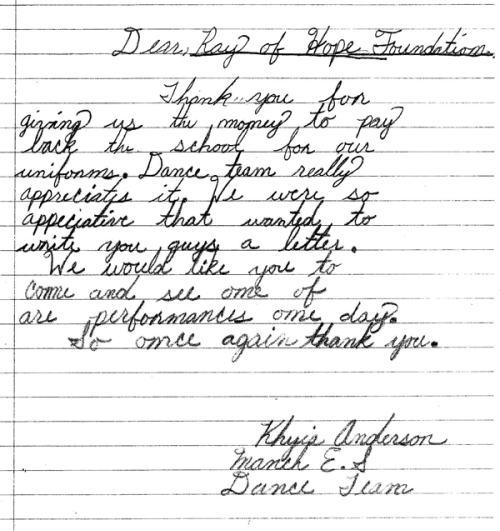 Dear, Ray of Hope Foundation.
Thank you for
giving us the money to pay
back the school for our
uniforms. Dance team really
appreciates it. We were so
appeciative that wanted to
write you guys a letter.
We would like you to
come and see one of
are performances one day.
So once again thank you.
Anderson
E.S
Dance Team